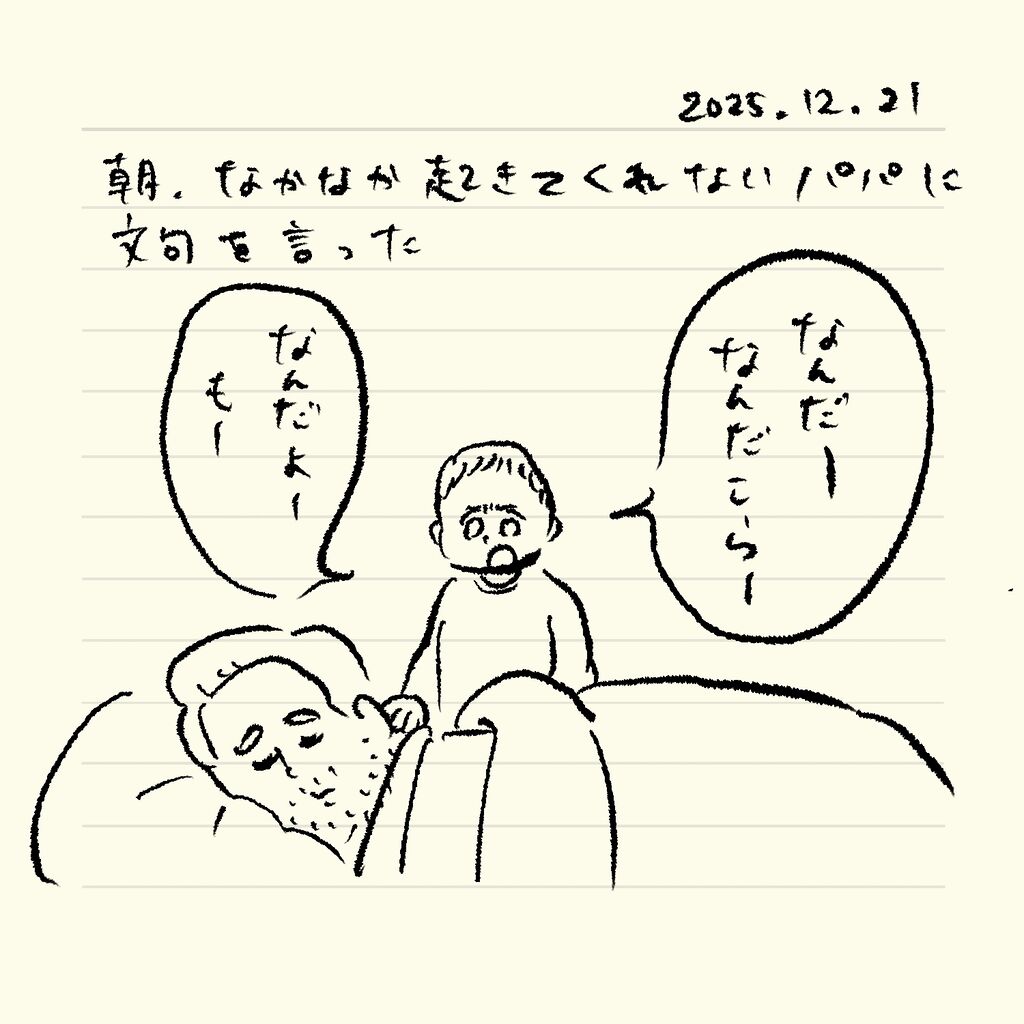 2025.12.21
朝、なかなか起きてくれないパパに
文句を言った
なんだー
なんだこらー
なんだよー
もー